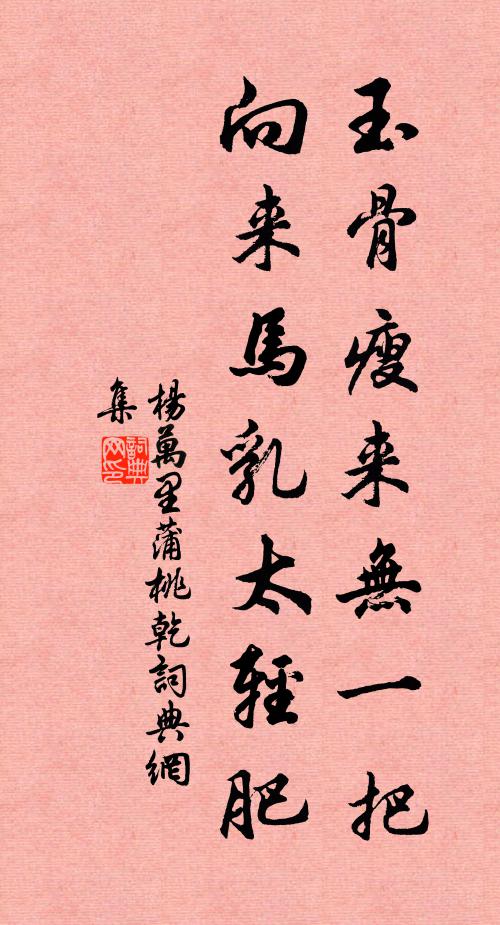 玉骨瘦来無一把
向来馬乳太輕肥
楊萬里蒲桃乾詞典網
集
詞典网印